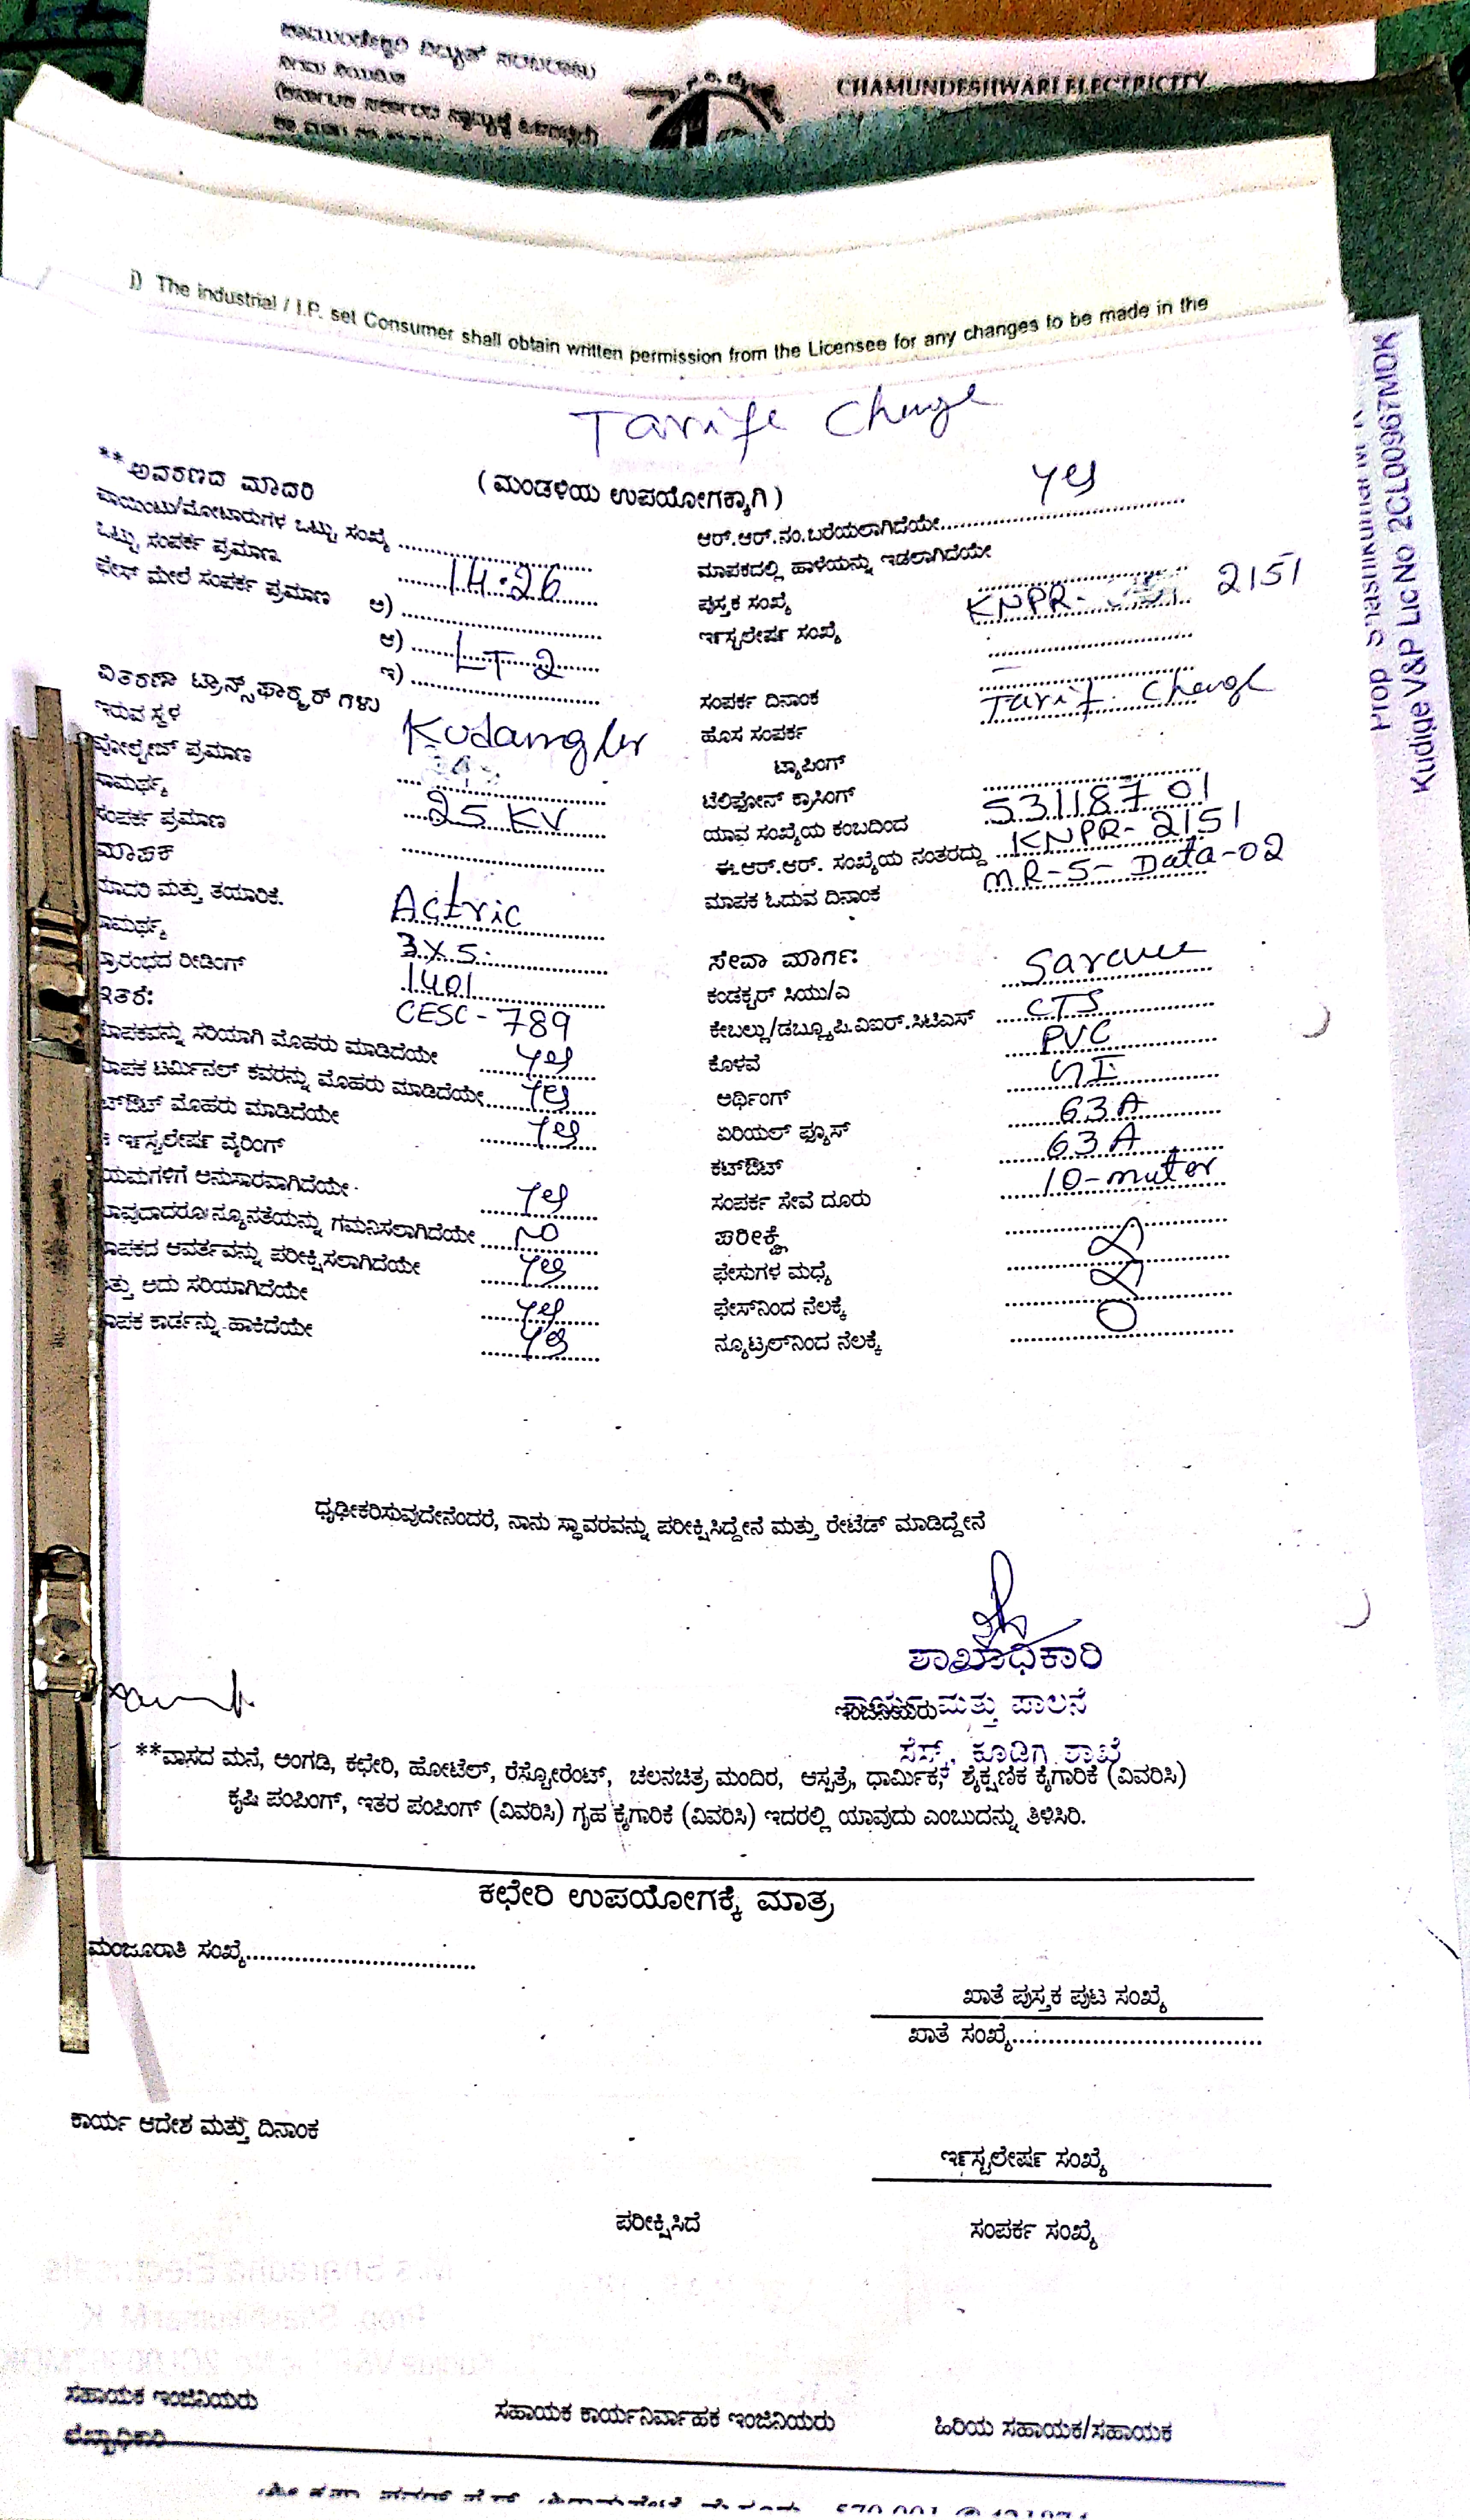 ಚಾಮುಂಡೇಶ್ವರಿ ವಿದ್ಯುತ್ ಸರಬರಾಜು
ನಿಗಮ ನಿಯಮಿತ
CHAMUNDESHWARI ELECTRICITY
j) The industrial / I.P. set Consumer shall obtain written permission from the Licensee for any changes to be made in the
Kudige V&P Lic No 2CL00967MDK
Tariff Change
**ಆವರಣದ ಮಾದರಿ
(ಮಂಡಳಿಯ ಉಪಯೋಗಕ್ಕಾಗಿ)
ಪಾಯಿಂಟು/ಮೋಟಾರುಗಳ ಒಟ್ಟು ಸಂಖ್ಯೆ ....................
ಆರ್.ಆರ್.ನಂ.ಬರೆಯಲಾಗಿದೆಯೇ.................... yes
ಒಟ್ಟು ಸಂಪರ್ಕ ಪ್ರಮಾಣ 14.26
ಮಾಪಕದಲ್ಲಿ ಹಾಳೆಯನ್ನು ಇಡಲಾಗಿದೆಯೇ
ಫೇಸ್ ಮೇಲೆ ಸಂಪರ್ಕ ಪ್ರಮಾಣ ಅ) ....................
ಪುಸ್ತಕ ಸಂಖ್ಯೆ KNPR- 2151
ಆ) LT-2
ಇನ್ಸ್ಟಲೇಷನ್ ಸಂಖ್ಯೆ
ಇ) ....................
ವಿತರಣಾ ಟ್ರಾನ್ಸ್‌ಫಾರ್ಮರ್ ಗಳು
ಸಂಪರ್ಕ ದಿನಾಂಕ
ಇರುವ ಸ್ಥಳ
ಹೊಸ ಸಂಪರ್ಕ Tarif. Change
ವೋಲ್ಟೇಜ್ ಪ್ರಮಾಣ
ಟ್ಯಾಪಿಂಗ್
ಸಾಮರ್ಥ್ಯ 25 KV
ಟೆಲಿಫೋನ್ ಕ್ರಾಸಿಂಗ್
ಸಂಪರ್ಕ ಪ್ರಮಾಣ
ಯಾವ ಸಂಖ್ಯೆಯ ಕಂಬದಿಂದ 53118701
ಮಾಪಕ
ಈ.ಆರ್.ಆರ್. ಸಂಖ್ಯೆಯ ನಂತರದ್ದು KNPR-2151
ಮಾದರಿ ಮತ್ತು ತಯಾರಿಕೆ. Actric
ಮಾಪಕ ಓದುವ ದಿನಾಂಕ MR-5-Data-02
ಸಾಮರ್ಥ್ಯ 3X5.
ಸೇವಾ ಮಾರ್ಗ:
ಪ್ರಾರಂಭದ ರೀಡಿಂಗ್ 1401
ಕಂಡಕ್ಟರ್ ಸಿಯು/ಎ
ಇತರೆ: CESC-789
ಕೇಬಲ್ಲು/ಡಬ್ಲ್ಯೂಪಿ.ವಿಐಆರ್.ಸಿಟಿಎಸ್ CTS
ಮಾಪಕವನ್ನು ಸರಿಯಾಗಿ ಮೊಹರು ಮಾಡಿದೆಯೇ yes
ಕೊಳವೆ PVC
ಮಾಪಕ ಟರ್ಮಿನಲ್ ಕವರನ್ನು ಮೊಹರು ಮಾಡಿದೆಯೇ yes
ಅರ್ಥಿಂಗ್ GI
ಕಟ್‌ಔಟ್ ಮೊಹರು ಮಾಡಿದೆಯೇ yes
ಏರಿಯಲ್ ಫ್ಯೂಸ್ 63A
ಇನ್ಸ್ಟಲೇಷನ್ ವೈರಿಂಗ್
ಕಟ್‌ಔಟ್ 63A
ನಿಯಮಗಳಿಗೆ ಅನುಸಾರವಾಗಿದೆಯೇ yes
ಸಂಪರ್ಕ ಸೇವೆ ದೂರು 10-muter
ಯಾವುದಾದರೂ ನ್ಯೂನತೆಯನ್ನು ಗಮನಿಸಲಾಗಿದೆಯೇ NO
ಪರೀಕ್ಷೆ
ಮಾಪಕದ ಆವರ್ತವನ್ನು ಪರೀಕ್ಷಿಸಲಾಗಿದೆಯೇ yes
ಫೇಸುಗಳ ಮಧ್ಯೆ
ಮತ್ತು ಅದು ಸರಿಯಾಗಿದೆಯೇ yes
ಫೇಸ್‌ನಿಂದ ನೆಲಕ್ಕೆ
ಮಾಪಕ ಕಾರ್ಡನ್ನು ಹಾಕಿದೆಯೇ yes
ನ್ಯೂಟ್ರಲ್‌ನಿಂದ ನೆಲಕ್ಕೆ 0
ಧೃಢೀಕರಿಸುವುದೇನೆಂದರೆ, ನಾನು ಸ್ಥಾವರವನ್ನು ಪರೀಕ್ಷಿಸಿದ್ದೇನೆ ಮತ್ತು ರೇಟೆಡ್ ಮಾಡಿದ್ದೇನೆ
ಶಾಖಾಧಿಕಾರಿ
ಮತ್ತು ಪಾಲನೆ
ಸೆಸ್ಕ್, ಕೂಡಿಗೆ ಶಾಖೆ
**ವಾಸದ ಮನೆ, ಅಂಗಡಿ, ಕಛೇರಿ, ಹೋಟೆಲ್, ರೆಸ್ಟೋರೆಂಟ್, ಚಲನಚಿತ್ರ ಮಂದಿರ, ಆಸ್ಪತ್ರೆ, ಧಾರ್ಮಿಕ, ಶೈಕ್ಷಣಿಕ ಕೈಗಾರಿಕೆ (ವಿವರಿಸಿ)
ಕೃಷಿ ಪಂಪಿಂಗ್, ಇತರ ಪಂಪಿಂಗ್ (ವಿವರಿಸಿ) ಗೃಹ ಕೈಗಾರಿಕೆ (ವಿವರಿಸಿ) ಇದರಲ್ಲಿ ಯಾವುದು ಎಂಬುದನ್ನು ತಿಳಿಸಿರಿ.
ಕಛೇರಿ ಉಪಯೋಗಕ್ಕೆ ಮಾತ್ರ
ಮಂಜೂರಾತಿ ಸಂಖ್ಯೆ....................
ಖಾತೆ ಪುಸ್ತಕ ಪುಟ ಸಂಖ್ಯೆ
ಖಾತೆ ಸಂಖ್ಯೆ....................
ಕಾರ್ಯ ಆದೇಶ ಮತ್ತು ದಿನಾಂಕ
ಇನ್ಸ್ಟಲೇಷನ್ ಸಂಖ್ಯೆ
ಪರೀಕ್ಷಿಸಿದೆ
ಸಂಪರ್ಕ ಸಂಖ್ಯೆ
ಸಹಾಯಕ ಇಂಜಿನಿಯರು
ಸಹಾಯಕ ಕಾರ್ಯನಿರ್ವಾಹಕ ಇಂಜಿನಿಯರು
ಹಿರಿಯ ಸಹಾಯಕ/ಸಹಾಯಕ